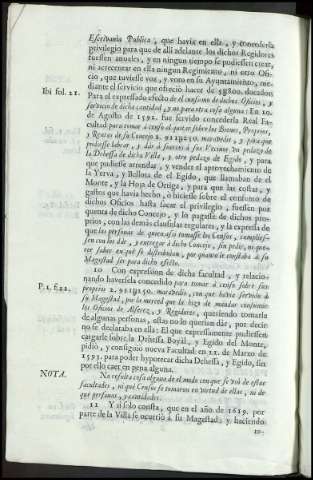 Escrivanía Publica, que havia en ella, y concederla
privilegio para que de allí adelante los dichos Regidores
fuessen anuales, y en ningun tiempo se pudiessen crear,
ni acrecentar en ella ningun Regimiento, ni otro Ofi-
cio, que tuviesse voz, y voto en su Ayuntamiento, me-
diante el servicio que ofreciò hacer de ducados.
Ibi fol. 21.
Para el expressado efecto de el consumo de dichos Oficios, y
servicio de dicha cantidad, y no para otra cosa alguna: En 10.
de Agosto de 1592. fue servido concederla Real Fa-
cultad para tomar à censo al quitar sobre los Bienes, Proprios,
y Rentas de su Concejo maravedis, y para que
pudiesse labrar, y dàr à suertes à sus Vecinos un pedazo de
la Dehessa de dicha Villa, y otro pedazo de Egido, y para
que pudiesse arrendar, y vender el aprovechamiento de
la Yerva, y Bellota de el Egido, que llamaban de el
Monte, y la Hoja de Ortiga, y para que las costas, y
gastos que havia hecho, ò hiciesse sobre el consumo de
dichos Oficios hasta sacar el privilegio, fuessen por
quenta de dicho Concejo, y lo pagasse de dichos pro-
prios, con las demàs clausulas regulares, y la expressa de
que las personas de quien assi tomasse los Censos, cumplies-
sen con los dàr, y entregar à dicho Concejo, sin pedir, ni que-
rer saber en què se distribuìan, por quanto le constaba à su
Magestad ser para dicho efecto.
10 Con expression de dicha facultad, y relacio-
nando haversela concedido para tomar à censo sobre sus
P. 1. f. 22.
proprios maravedis, con que havia servido à
su Magestad, por la merced que le hizo de mandar consumir
los Oficios de Alferez, y Regidores, queriendo tomarlos
de algunas personas, estas no lo querian dàr, por decir
no se declaraba en ella: El que expressamente pudiessen
cargarse sobre la Dehessa Boyal, y Egido del Monte,
pidiò, y consiguiò nueva Facultad en 22. de Marzo de
1593. para poder hypotecar dicha Dehessa, y Egido, sin
por ello caer en pena alguna.
NOTA.
No resulta cosa alguna de el modo con que se usò de estas
facultades, ni què Censos se tomaron en virtud de ellas, ni de
què personas, y cantidades.
11 Y si solo consta, que en el año de 1619. por
parte de la Villa se ocurriò à su Magestad, y haciendo
re-